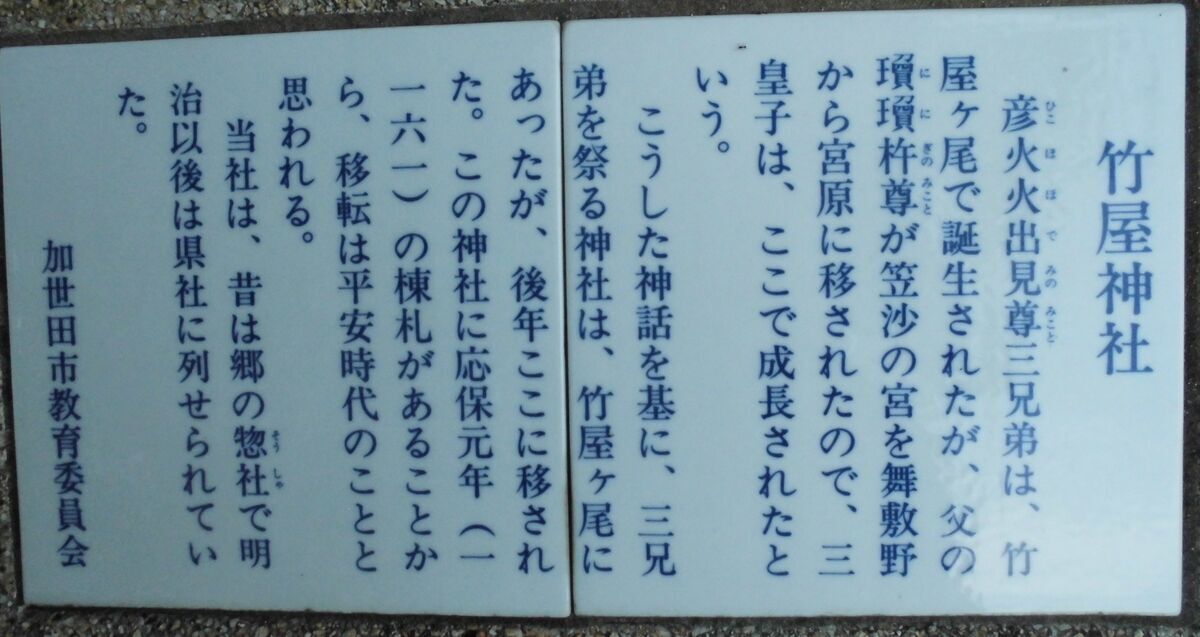 竹屋神社
ひこほほでみのみこと
彦火火出見尊三兄弟は、竹
屋ヶ尾で誕生されたが、父の
ににぎのみこと
瓊瓊杵尊が笠沙の宮を舞敷野
から宮原に移されたので、三
皇子は、ここで成長されたと
いう。
こうした神話を基に、三兄
弟を祭る神社は、竹屋ヶ尾に
あったが、後年ここに移され
た。この神社に応保元年(一
一六一)の棟札があることか
ら、移転は平安時代のことと
思われる。
そうしゃ
当社は、昔は郷の惣社で明
治以後は県社に列せられてい
た。
加世田市教育委員会